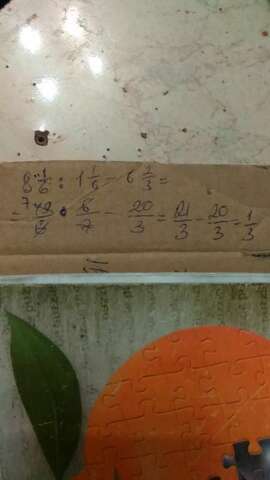 8 1/6 : 1 1/6 - 6 2/3 =
= 7 49/6 · 6/7 - 20/3 = 21/3 - 20/3 = 1/3